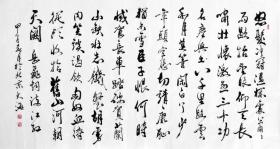 怒髮沖冠憑欄處瀟瀟
雨歇抬望眼仰天長
嘯壯懷激烈三十功
名塵與土八千里路雲
和月莫等閒白了少
年頭空悲切靖康恥
猶未雪臣子恨何時
滅駕長車踏破賀蘭
山缺壯志飢餐胡虜
肉笑談渴飲匈奴血待
從頭收拾舊山河朝
天闕 岳飛詞滿江紅
甲午年 北京